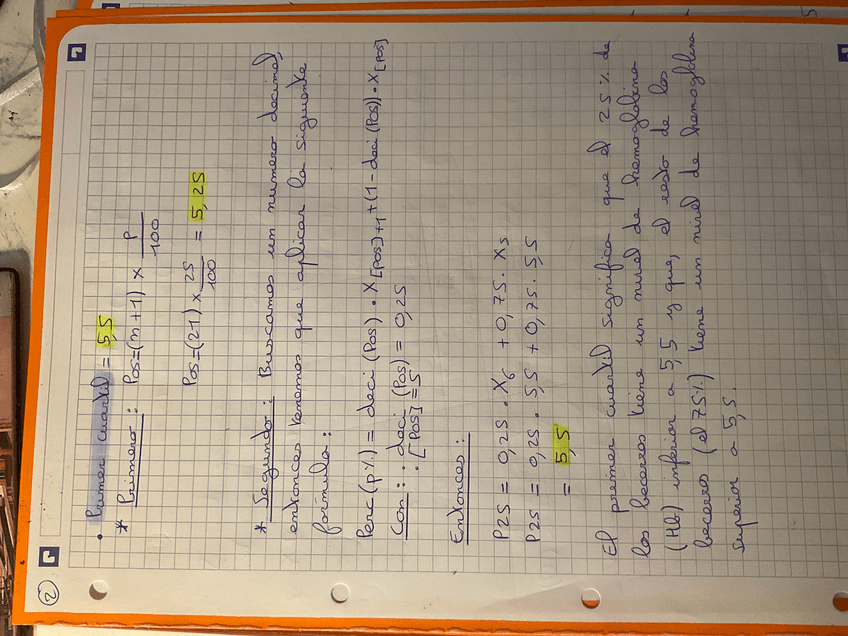 2
• Primer cuartil = 5,5
* Primero : Pos=(n+1) × P/100
Pos=(21) × 25/100 = 5,25
* Segundo : Buscamos un numero decimal,
entonces tenemos que aplicar la siguiente
fórmula :
Perc (p%) = deci (Pos) • X[Pos]+1 + (1 - deci (Pos)) • X[Pos]
Con : • deci (Pos) = 0,25
• [Pos] = 5
Entonces :
P25 = 0,25 • X6 + 0,75 • X5
P25 = 0,25 • 5,5 + 0,75 • 5,5
= 5,5
El premer cuartil significa que el 25% de
los becerros tiene un nivel de hemoglobina
(Hb) inferior a 5,5 y que, el resto de los
becerros (el 75%) tiene un nivel de hemoglobina
superior a 5,5.
5